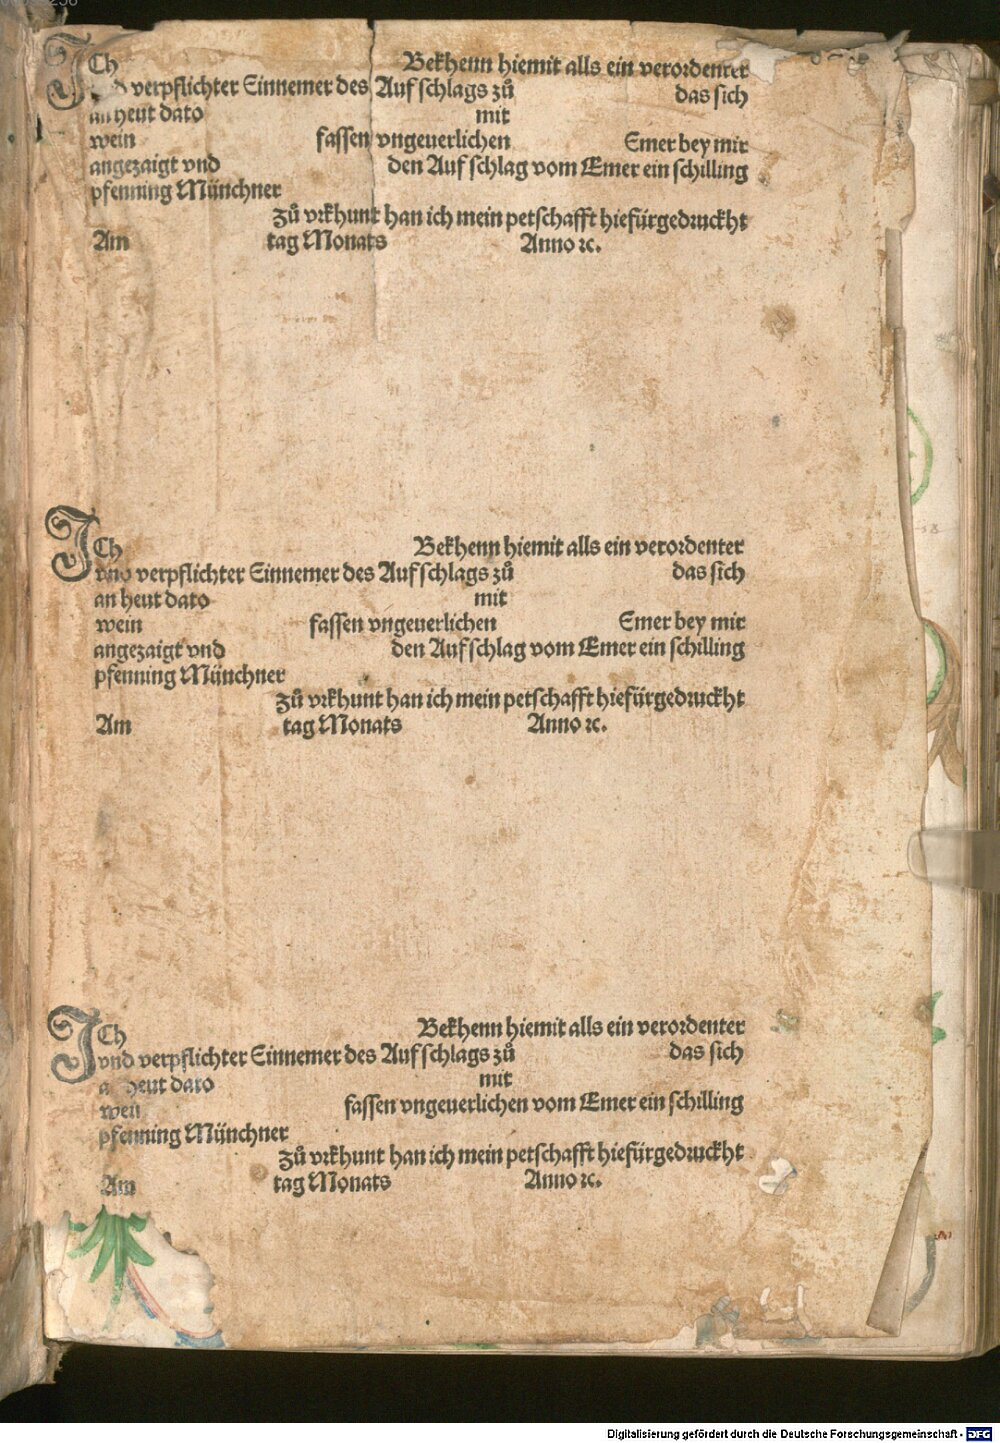 ICh Bekhenn hiemit alls ein verordenter
verpflichter Einnemer des Auffschlags zů das sich
an heut dato mit
wein fassen vngeuerlichen Emer bey mir
angezaigt vnd den Auffschlag vom Emer ein schilling
pfenning Münchner
zů vrkhunt han ich mein petschafft hiefürgedruckht
Am tag Monats Anno ꝛc.
ICh Bekhenn hiemit alls ein verordenter
vnd verpflichter Einnemer des Auffschlags zů das sich
an heut dato mit
wein fassen vngeuerlichen Emer bey mir
angezaigt vnd den Auffschlag vom Emer ein schilling
pfenning Münchner
zů vrkhunt han ich mein petschafft hiefürgedruckht
Am tag Monats Anno ꝛc.
ICh Bekhenn hiemit alls ein verordenter
vnd verpflichter Einnemer des Auffschlags zů das sich
heut dato mit
wein fassen vngeuerlichen vom Emer ein schilling
pfenning Münchner
zů vrkhunt han ich mein petschafft hiefürgedruckht
Am tag Monats Anno ꝛc.
Digitalisierung gefördert durch die Deutsche Forschungsgemeinschaft - DFG